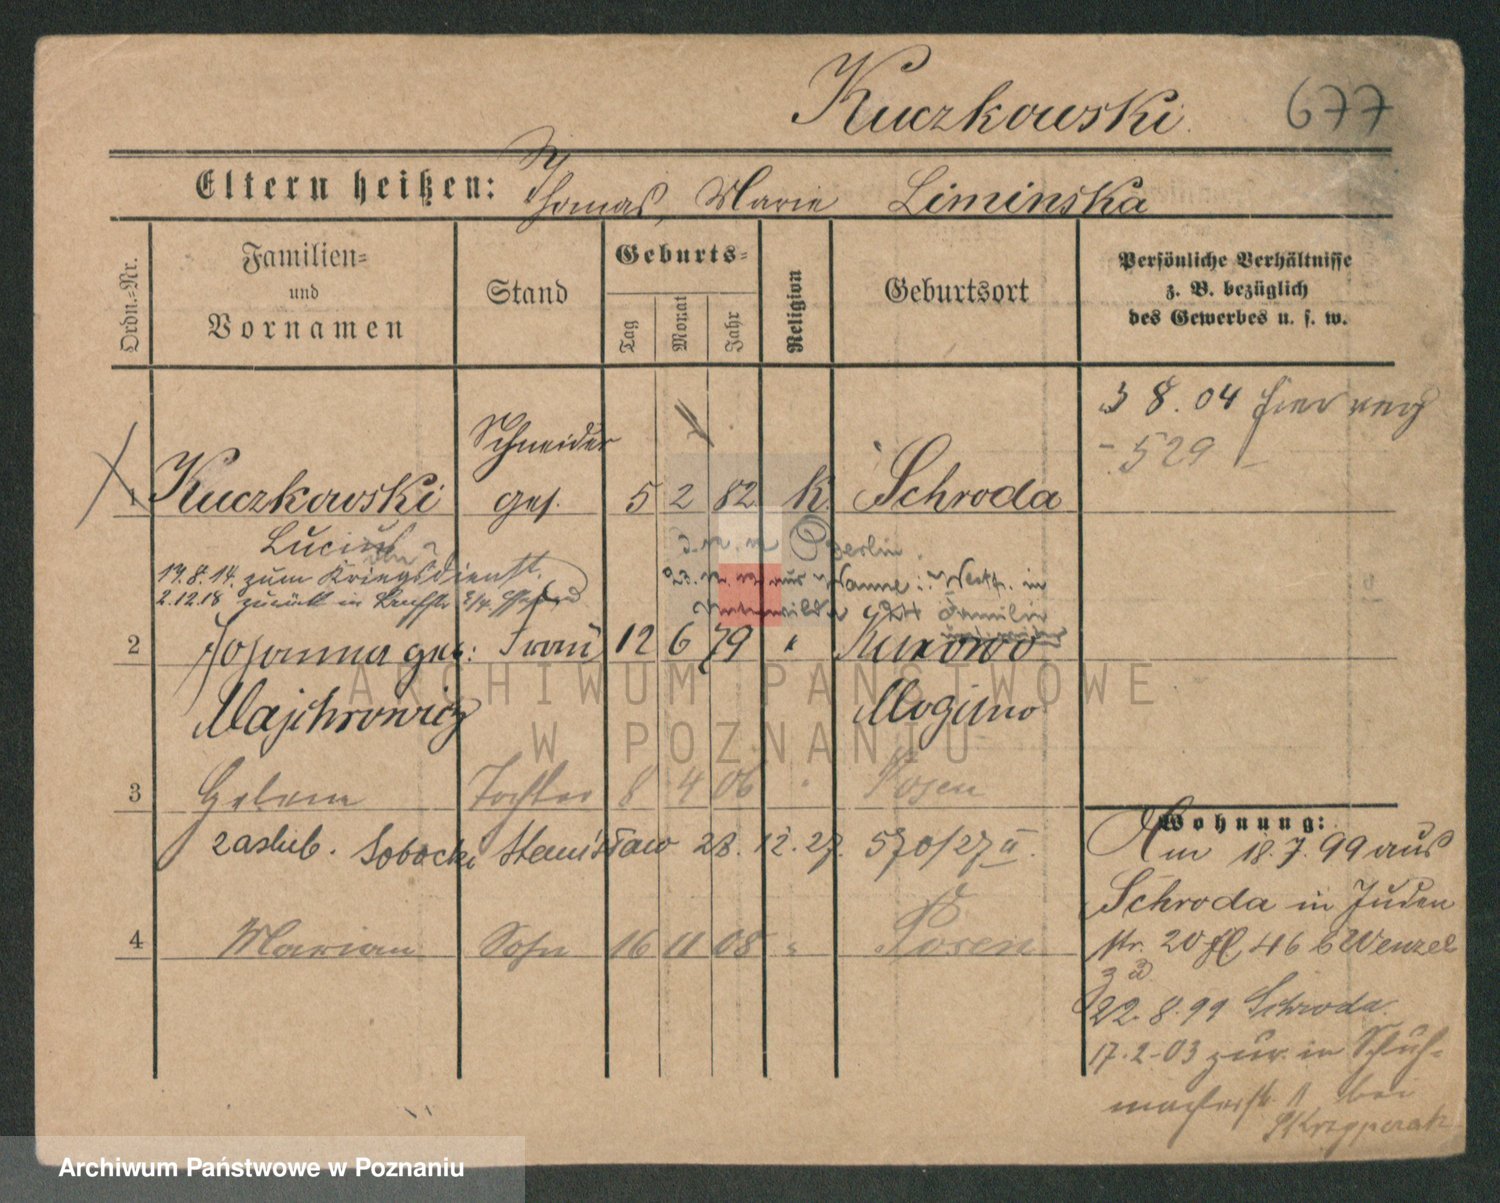 Kuczkowski 677
Eltern heißen: Thomas, Marie Liminska
Ordn.-Nr.
Familien-
und
Vornamen
Stand
Geburts-
Tag
Monat
Jahr
Religion
Geburtsort
Persönliche Verhältnisse
z. B. bezüglich
des Gewerbes u. s. w.
3 8. 04
- 529 -
Schneider
1 Kuczkowski ges. 5 2 82 K. Schroda
Lucius
19.8.14. zum Kriegsdienst.
2.12.18 zurück in
Berlin
23. aus Wanne: Westf. in
Familie
2 Johanna geb: Frau 12 6 79 " Kurowo
Majchrowicz Mogilno
ARCHIWUM PAŃSTWOWE
W POZNANIU
3 Helene Tochter 8 4 06 " Posen
zaslub. Sobocki Stanisław 28. 12. 27. 570/27 II.
4 Marian Sohn 16 11 08 " Posen
Wohnung:
Am 18.7.99 aus
Schroda in Juden
str. 20 46 b Wenzel
22. 8. 99 Schroda.
17. 2. 03 zur. in Schuh-
macherstr. bei
Archiwum Państwowe w Poznaniu